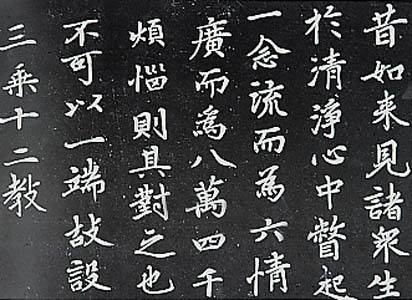 昔如来見諸衆生
於清淨心中瞥起
一念流而為六情
廣而為八萬四千
煩惱則其對之也
不可以一端故設
三乘十二教